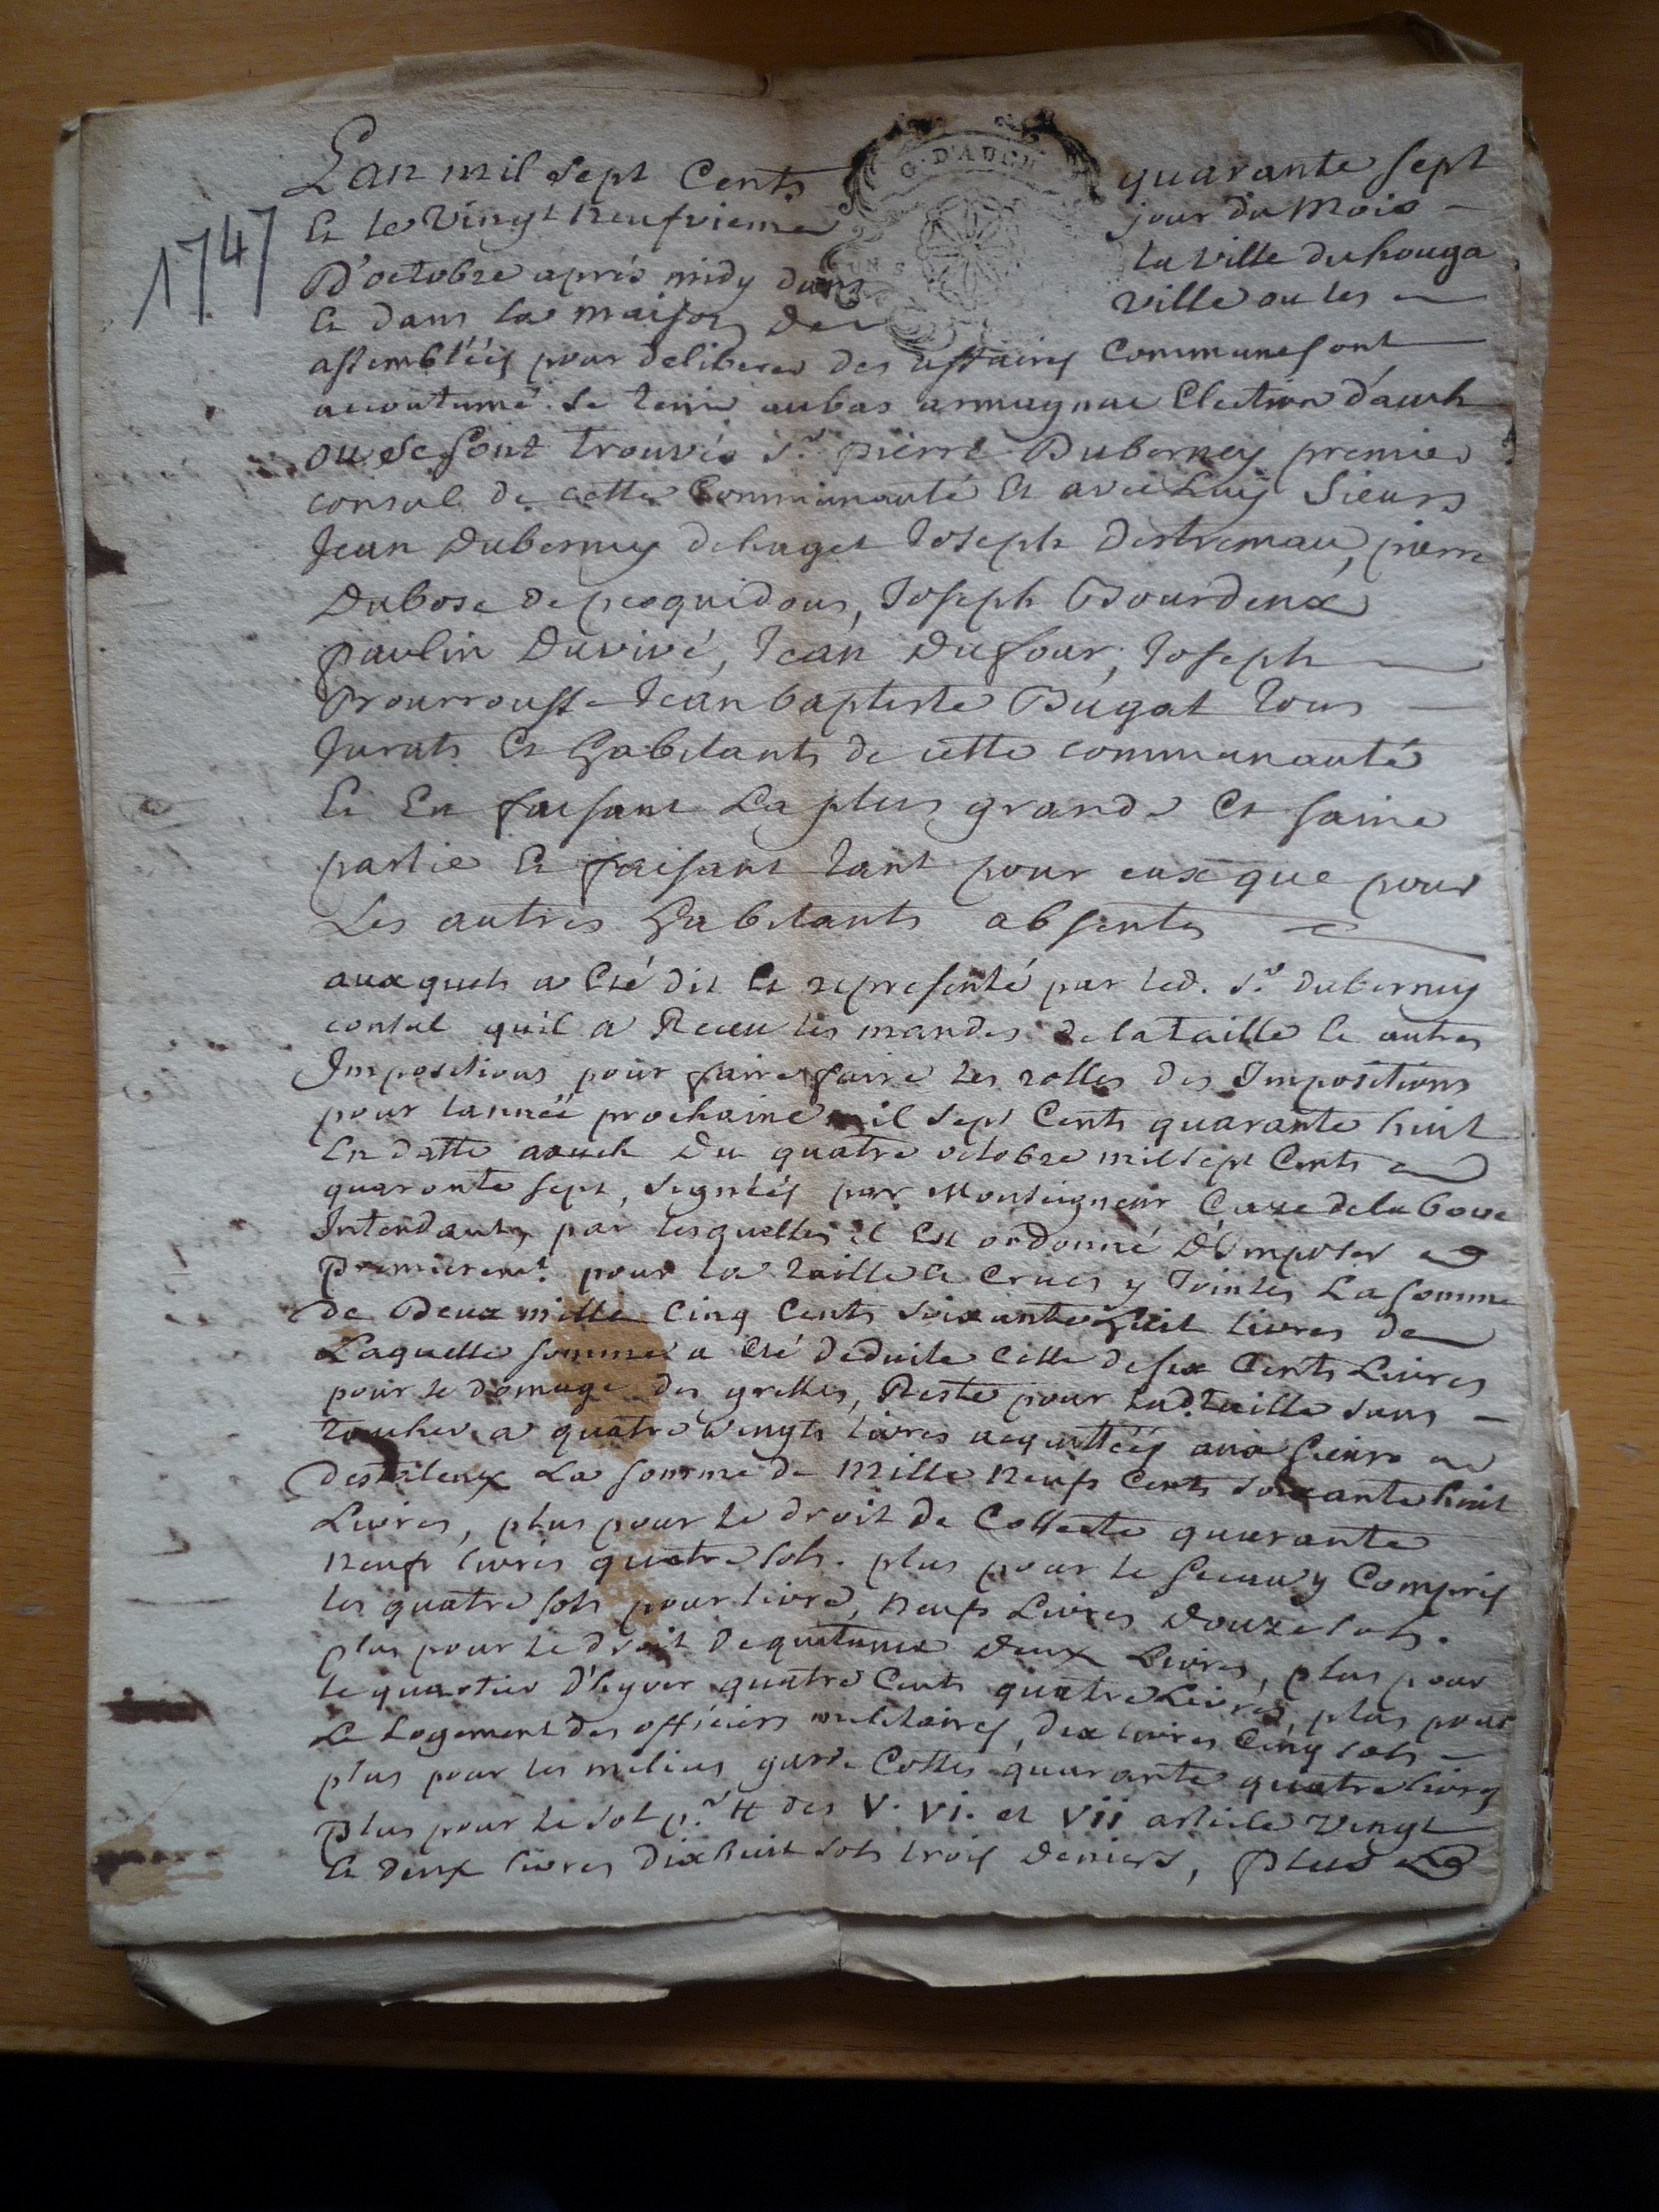 G. D'AUCH
1747
Lan mil sept Cents quarante sept
Et le Vingt neufvieme jour du Mois
D'octobre aprés midy dans la ville du houga
Et dans la maison de ville ou les
assembléés pour deliberer des affaires Communes ont
accoutumé de tenir au bas armagnac Election d'auch
ou se sont trouvés Sr. pierre Duberney premier
consul de cette Communauté Et avec Luy Sieurs
Jean Duberney dehaget Joseph Destremau, pierre
Dubosc de pesquidous, Joseph Bourdeux
paulin Duvivé, Jean Dufour, Joseph
Bourrousse Jean baptiste Dugat tous
Jurats Et habitants de cette communauté
Et En faisant La plus grande Et saine
partie Et faisant tant pour eux que pour
Les autres habitants absents
auxquels a Eté dit Et representé par led. Sr. duberney
consul quil a Receu les mandes de la taille Et autres
Impositions pour faire faire les rolles des Impositions
pour lannéé prochaine mil sept Cents quarante huit
En datte a auch Du quatre octobre mil sept Cents
quarante sept, signéés par Monseigneur Caze de la bove
Intendant, par lesquelles il Est ordonné D'Imposer
Premierent. pour la taille Et Crues y Jointes La somme
de Deux mille Cinq Cents soixante huit livres de
Laquelle somme a Eté deduite Celle de six Cents Livres
pour le domage des grelles, Reste pour lad. taille sans
toucher a quatre vingts livres acquittéés aux sieurs
La somme de mille neuf Cents soixante huit
Livres, plus pour le droit de Collecte quarante
neuf livres quatre sols. plus pour le sceau y Compris
les quatre sols pour livre, neuf Livres Douze sols.
plus pour le droit de quittance Deux Livres, plus pour
le quartier D'hyver quatre Cents quatre Livres, plus pour
Le Logement des officiers militaires, dix livres Cinq sols
plus pour les milices garde Cottes quarante quatre livres
Plus pour le sol pr. tt des V. Vi. et Vii article Vingt
Et deux livres Dix huit sols trois deniers, Plus